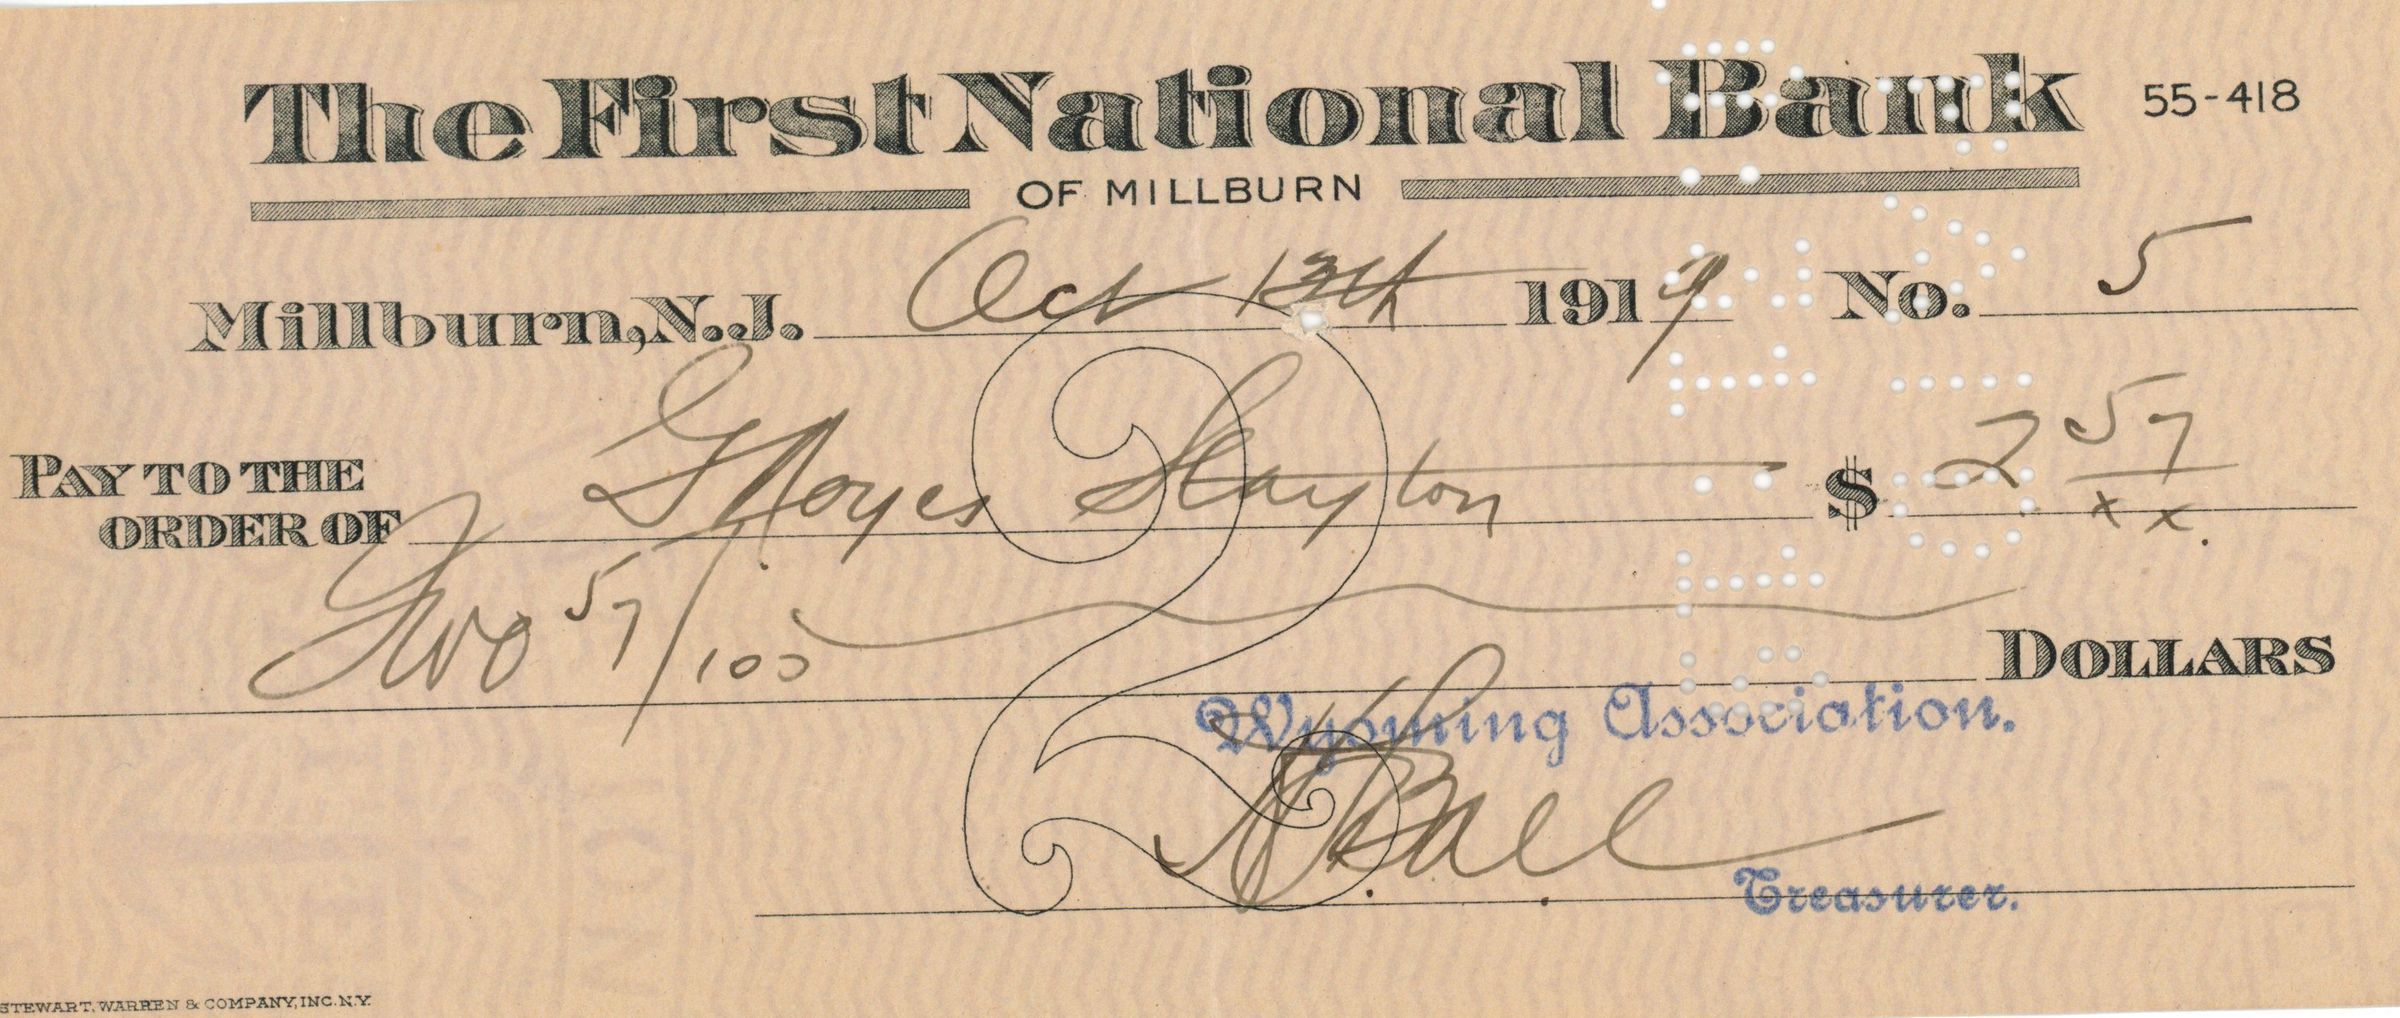 The First National Bank 55-418
OF MILLBURN
Millburn, N.J. Oct 13th 1919 No. 5
PAY TO THE
ORDER OF G Noyes Slayton $ 2 57/xx
Two 57/100 DOLLARS
Wyoming Association.
Ball
Treasurer.
STEWART, WARREN & COMPANY, INC. N.Y.